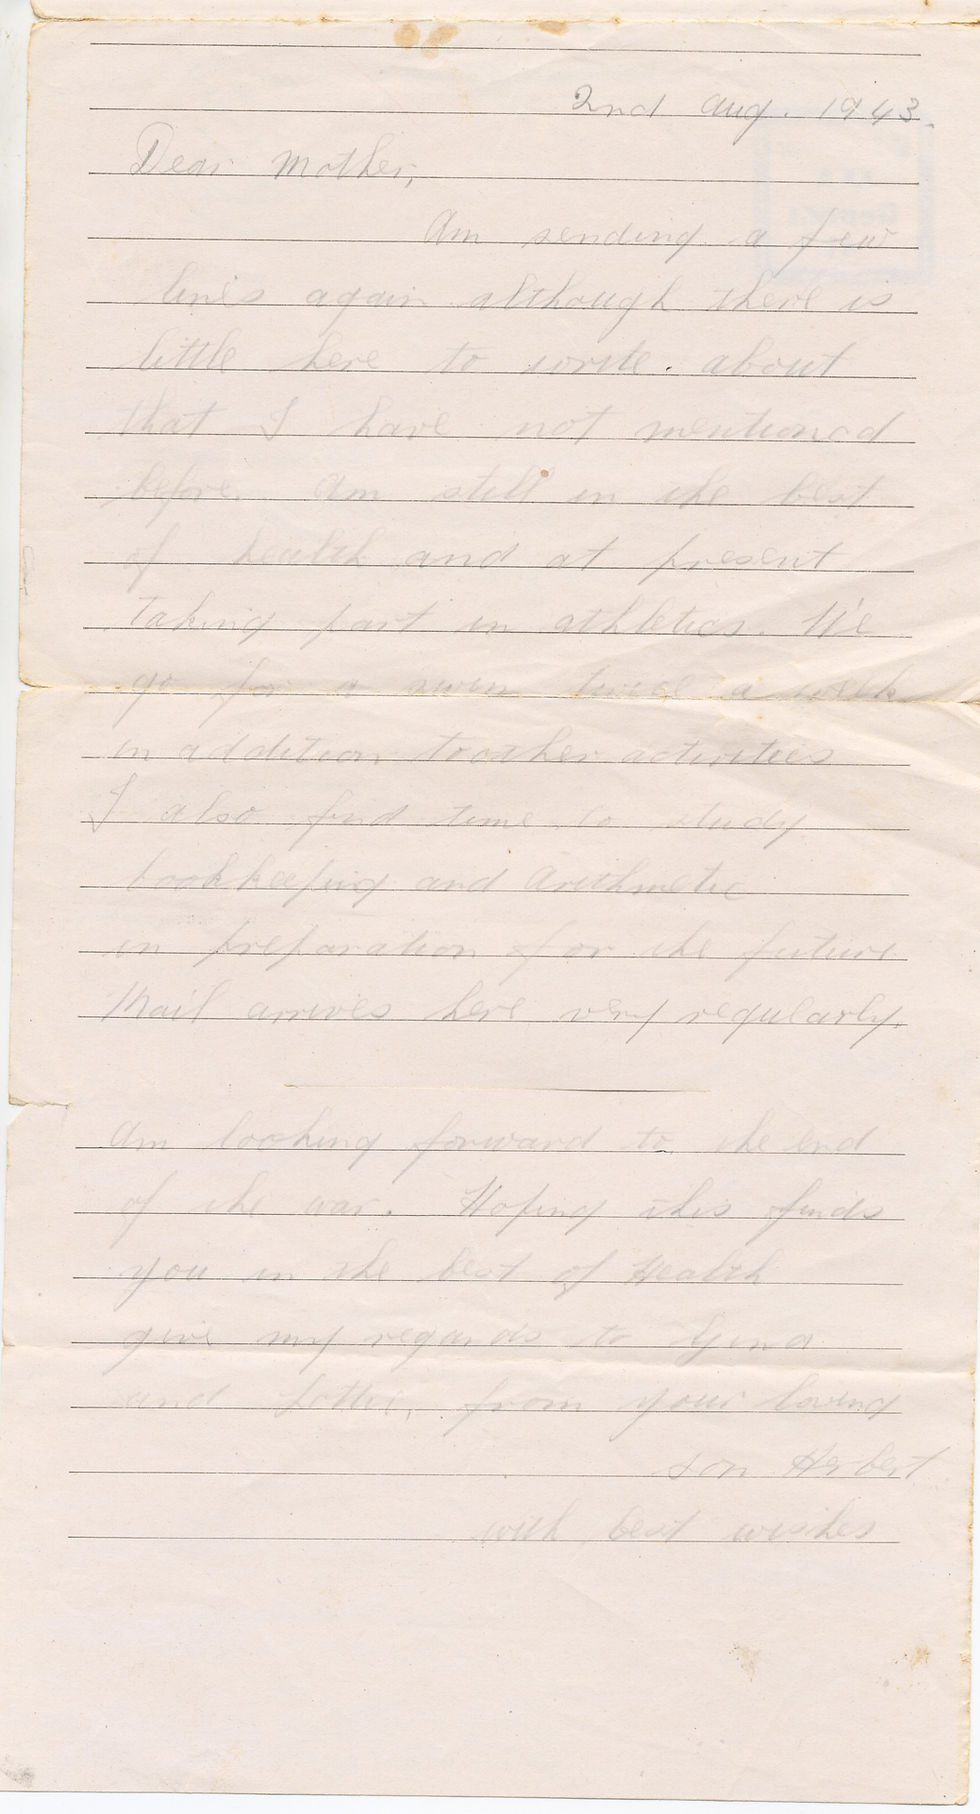 2nd Aug. 1943.
Dear Mother,
Am sending a few
lines again although there is
little here to write. about
that I have not mentioned
before. Am still in the best
of health and at present
taking part in athletics. We
go for a swim twice a week
in addition to other activities
I also find time to study
bookkeeping and Arithmetic
in preparation for the future
Mail arrives here very regularly.
Am looking forward to the end
of the war. Hoping this finds
you in the best of Health
give my regards to
and Lottie, from your loving
son Herbert
with best wishes